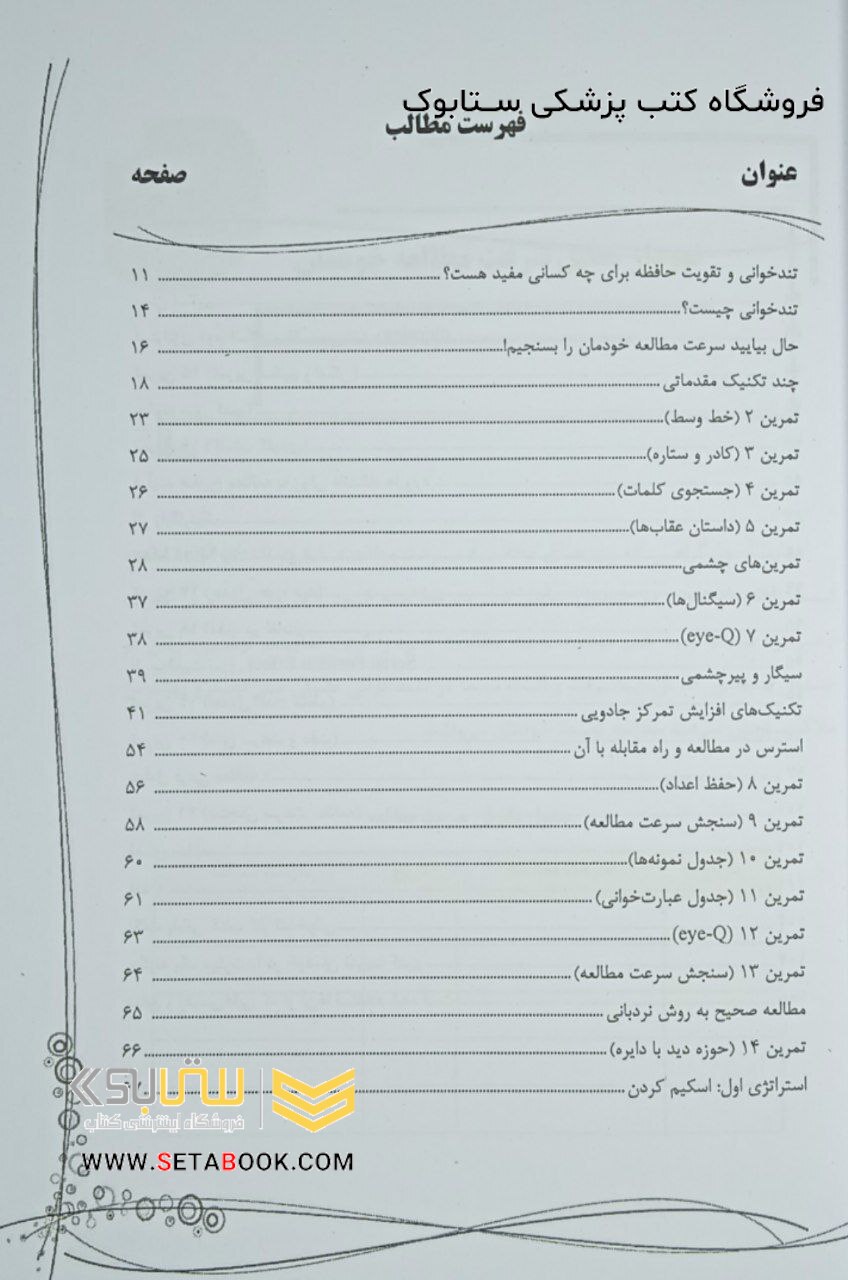 فروشگاه کتب پزشکی ستابوک
فهرست مطالب
عنوان صفحه
تندخوانی و تقویت حافظه برای چه کسانی مفید هست؟ ۱۱
تندخوانی چیست؟ ۱۴
حال بیایید سرعت مطالعه خودمان را بسنجیم! ۱۶
چند تکنیک مقدماتی ۱۸
تمرین ۲ (خط وسط) ۲۳
تمرین ۳ (کادر و ستاره) ۲۵
تمرین ۴ (جستجوی کلمات) ۲۶
تمرین ۵ (داستان عقاب‌ها) ۲۷
تمرین‌های چشمی ۲۸
تمرین ۶ (سیگنال‌ها) ۳۷
تمرین ۷ (eye-Q) ۳۸
سیگار و پیرچشمی ۳۹
تکنیک‌های افزایش تمرکز جادویی ۴۱
استرس در مطالعه و راه مقابله با آن ۵۴
تمرین ۸ (حفظ اعداد) ۵۶
تمرین ۹ (سنجش سرعت مطالعه) ۵۸
تمرین ۱۰ (جدول نمونه‌ها) ۶۰
تمرین ۱۱ (جدول عبارت‌خوانی) ۶۱
تمرین ۱۲ (eye-Q) ۶۳
تمرین ۱۳ (سنجش سرعت مطالعه) ۶۴
مطالعه صحیح به روش نردبانی ۶۵
تمرین ۱۴ (حوزه دید با دایره) ۶۶
استراتژی اول: اسکیم کردن
ستابوک
فروشگاه اینترنتی کتاب
WWW.SETABOOK.COM